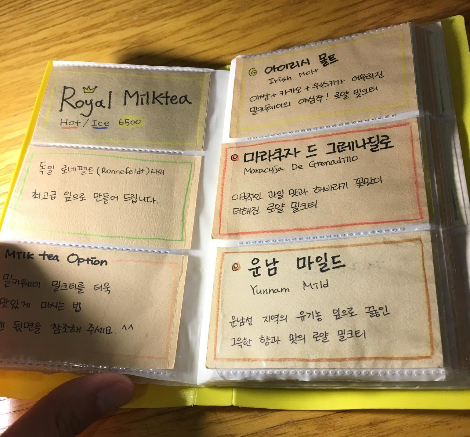 Royal Milktea
Hot / Ice 6500
독일 로네펠트(Ronnefeldt)사의
최고급 잎으로 만들어 드립니다.
Milk tea Option
밀크티를 더욱
맛있게 마시는 법
뒷면을 참조해 주세요. ^^
아이리쉬 몰트
Irish Malt
카카오 + 위스키가 어우러진
로얄 밀크티
마라쿠자 드 그레나딜로
Maracuja De Grenadillo
과일 맛과 해바라기 꽃잎이
더해진 로얄 밀크티
운남 마일드
Yunnam Mild
운남성 지역의 유기농 잎으로 끓인
그윽한 향과 맛의 로얄 밀크티